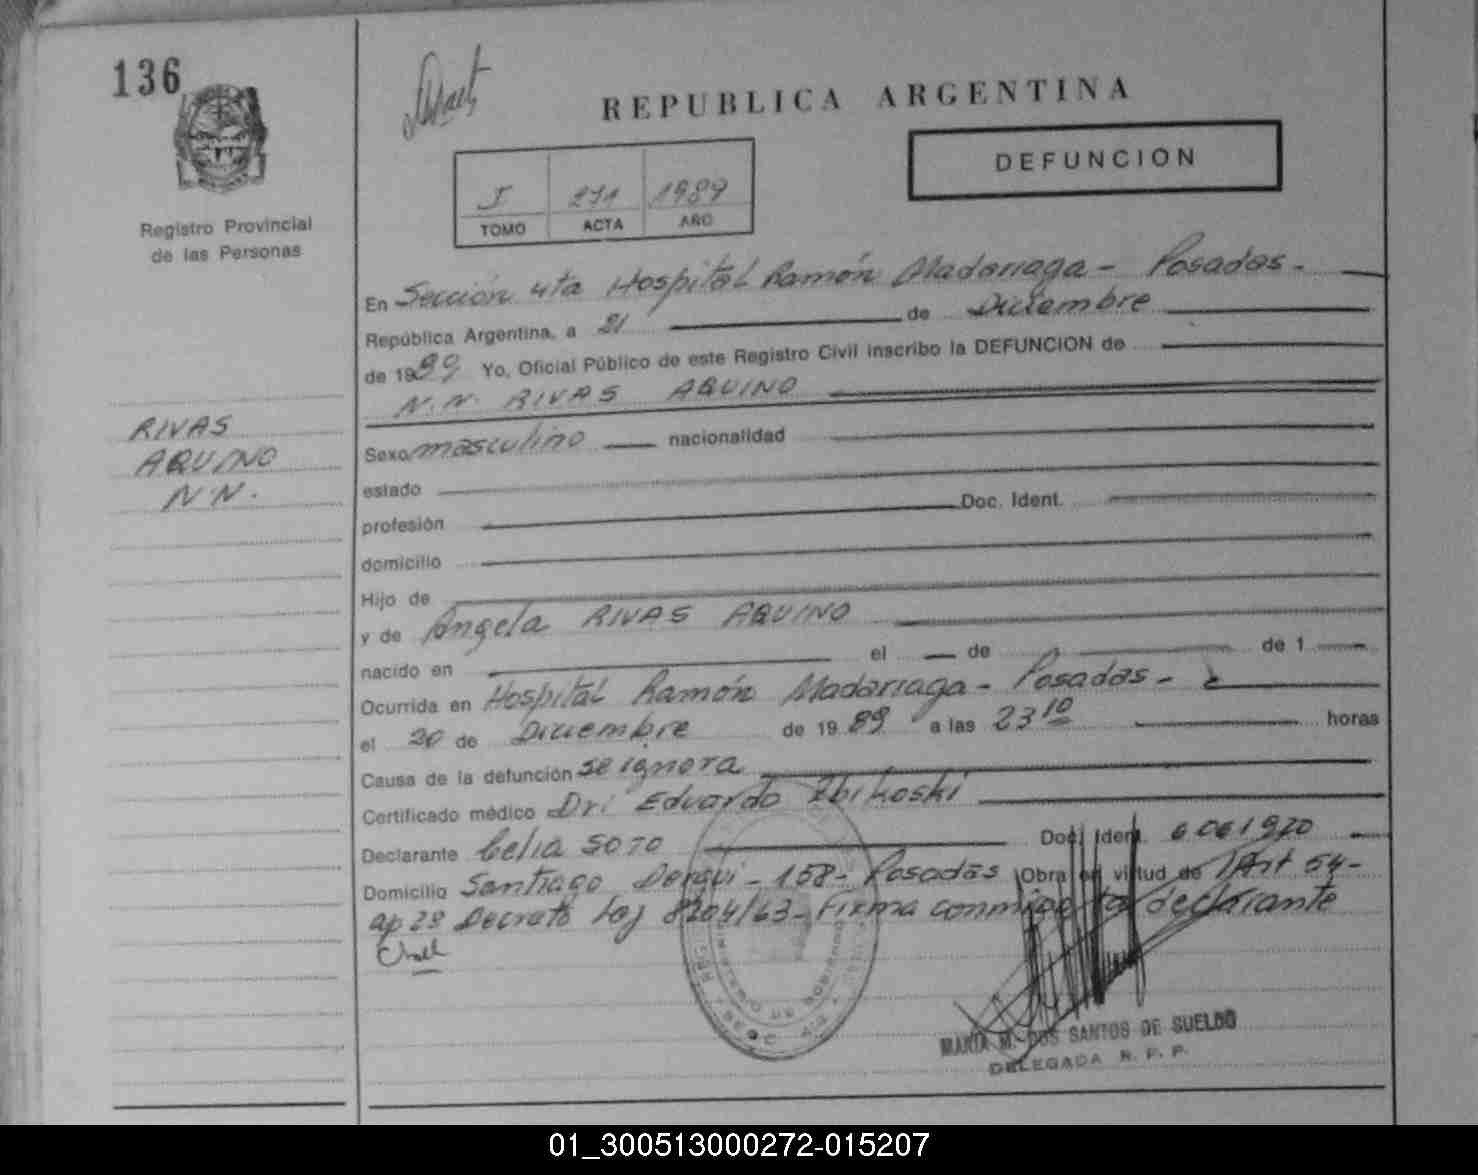 136
REPUBLICA ARGENTINA
DEFUNCION
I 271 1989
TOMO ACTA AÑO
Registro Provincial
de las Personas
En Sección 4ta Hospital Ramón Madariaga - Posadas -
República Argentina, a 21 de Diciembre
de 1989 Yo, Oficial Público de este Registro Civil inscribo la DEFUNCION de
N.N. RIVAS AQUINO
RIVAS
AQUINO
N.N.
Sexo masculino nacionalidad
estado
profesión Doc. Ident.
domicilio
Hijo de
y de Angela RIVAS AQUINO
nacido en el de de 1
Ocurrida en Hospital Ramón Madariaga - Posadas -
el 20 de Diciembre de 1989 a las 23 10 horas
Causa de la defunción se ignora
Certificado médico Dr: Eduardo Zbikoski
Declarante Celia SOTO Doc. Ident. 6061970
Domicilio Santiago Derqui - 158 - Posadas Obra en virtud de Art 54-
ap 28 Decreto Ley 8204/63 - Firma conmigo la declarante
MARIA M. DOS SANTOS DE SUELDO
DELEGADA R. P. P.
01_300513000272-015207